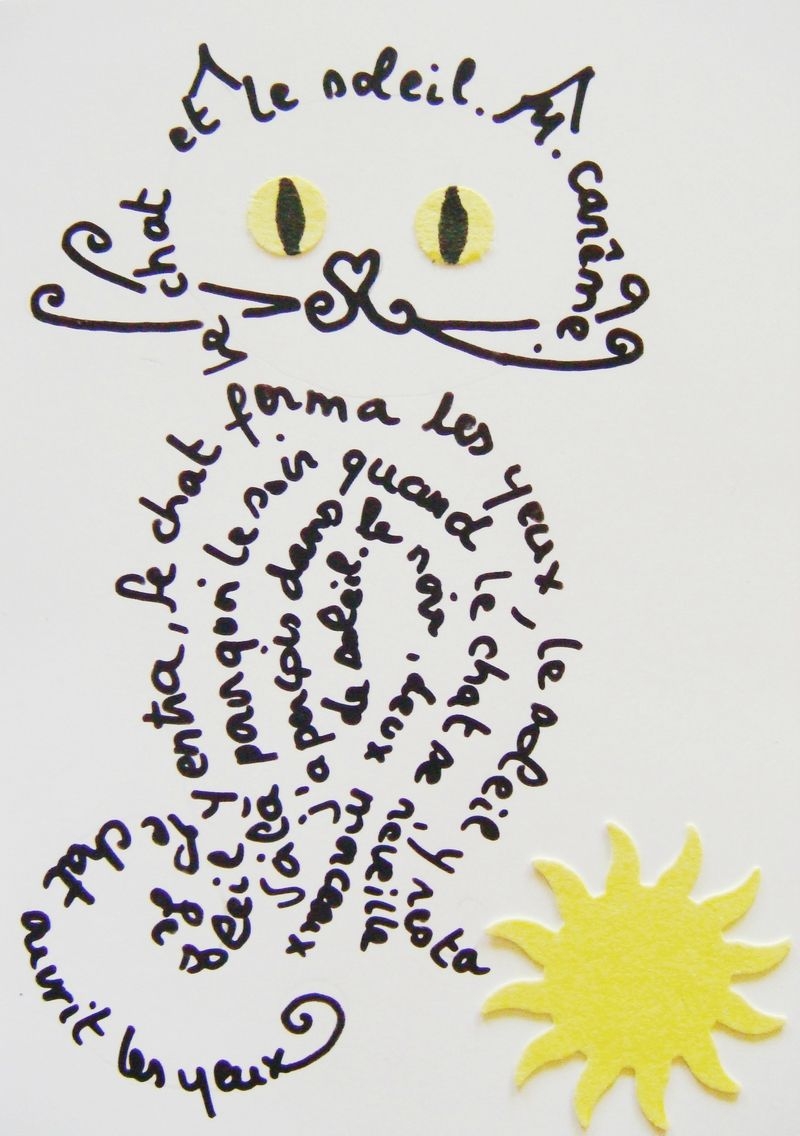 Le chat et le soleil. M. carême.
Le chat ouvrit les yeux
Le soleil y entra,
le chat ferma les yeux,
le soleil y resta
voilà pourquoi le soir
quand le chat se réveille
j'aperçois dans le noir,
deux morceaux de soleil.